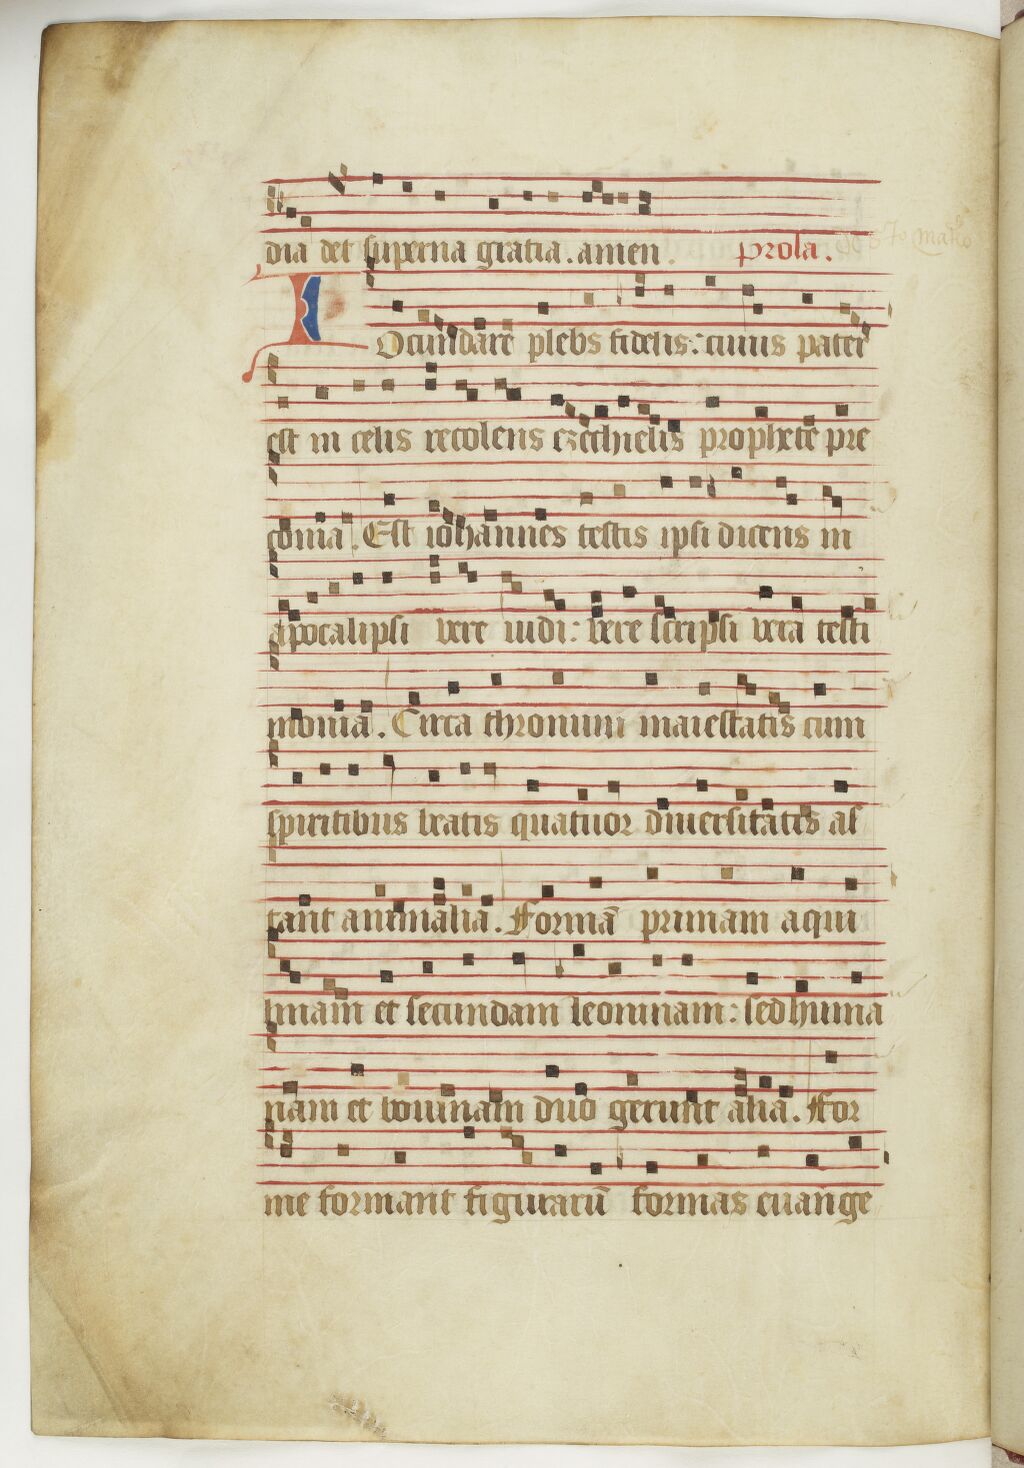 dia det superna gratia. amen. prosa.
Iocundare plebs fidelis: cuius pater
est in celis recolens ezechielis prophete pre
conia. Est iohannes testis ipsi dicens in
apocalipsi vere uidi: vere scripsi vera testi
monia. Circa thronum maiestatis cum
spiritibus beatis quatuor diuersitatis as
tant animalia. Formā primam aqui
linam et secundam leoninam: sed huma
nam et bouinam duo gerunt alia. For
me formant figurarū formas euange